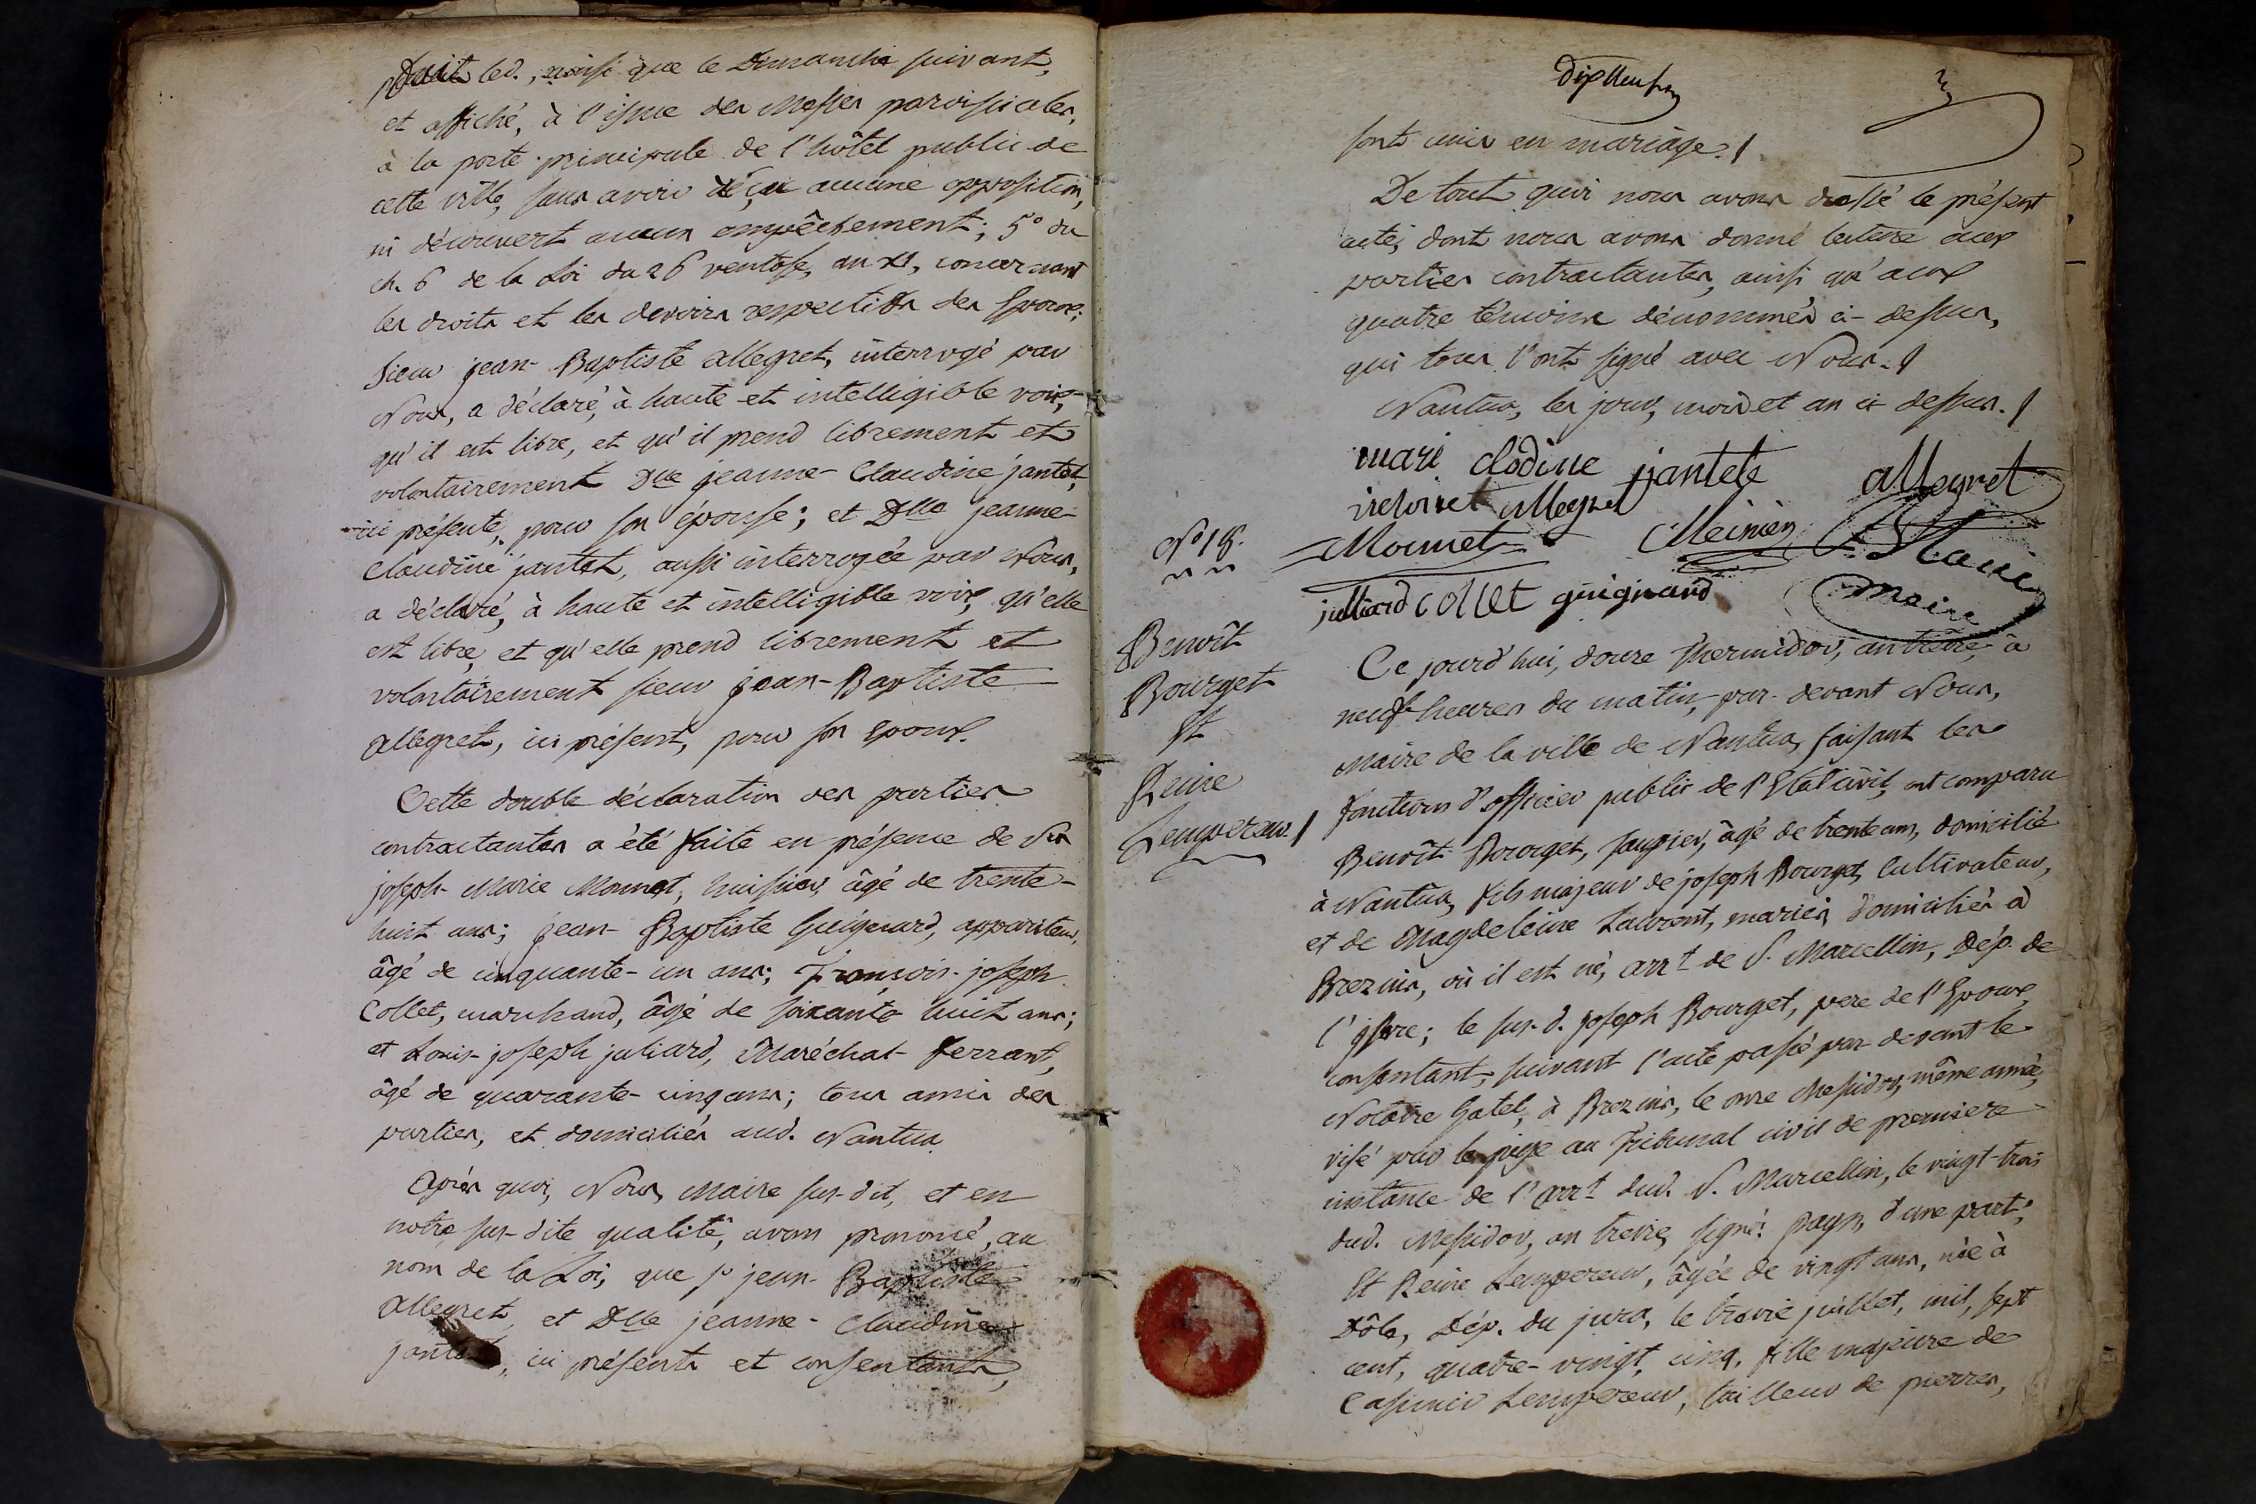 led., ainsi que le Dimanche suivant,
et affiché, à l'issue des Messes paroissiales,
à la porte principale de l'hôtel public de
cette ville, sans avoir reçu aucune opposition,
ni découvert aucun empêchement; 5° du
ch. 6 de la Loi du 26 ventose, an XI, concernant
les droits et les devoirs respectifs des Epoux;
Sieur jean-Baptiste allegret, interrogé par
Nous, a déclaré, à haute et intelligible voix,
qu'il est libre, et qu'il prend librement et
volontairement Dlle jeanne-Claudine jantet,
ici présente, pour son épouse; et Dlle jeanne-
Claudine jantet, aussi interrogée par Nous,
a déclaré, à haute et intelligible voix, qu'elle
est libre, et qu'elle prend librement et
volontairement sieur jean-Baptiste
allegret, ici présent, pour son Epoux.
Cette double déclaration des parties
contractantes a été faite en présence de Srs
joseph-Marie Monnet, huissier, âgé de trente-
huit ans; jean-Baptiste Guignard, appariteur,
âgé de cinquante-un ans; François-joseph
Collet, marchand, âgé de soixante huit ans;
et Louis-joseph juliard, Maréchal-ferrant,
âgé de quarante-cinq ans; tous amis des
parties, et domiciliés aud. Nantua.
Après quoi, Nous, Maire sus-dit, et en
notre sus-dite qualité, avons prononcé, au
nom de la Loi, que sr jean-Baptiste
allegret, et Dlle jeanne-Claudine
jantet, ici présents et consentants,
sont unis en mariage./
De tout quoi nous avons dressé le présent
acte, dont nous avons donné lecture aux
parties contractantes, ainsi qu'aux
quatre témoins dénommés ci-dessus,
qui tous l'ont signé avec Nous./
Nantua, les jour, mois et an ci-dessus./
mari clodine jantete allegret
allegret
Monnet Meinier
juliard collet guignard maire
N° 18.
Benoît
Bourget
Et
Reine
Lempereur./
Ce jourd'hui, douze Thermidor, an treize, à
neuf heures du matin, par-devant Nous,
Maire de la ville de Nantua, faisant les
fonctions d'officier public de l'Etat civil, ont comparu
Benoît Bourget, sangier, âgé de trente ans, domicilié
à Nantua, fils majeur de joseph Bourget, Cultivateur,
et de Magdeleine Laurent, mariés, domiciliés à
Brezins, où il est né, arrt de S. Marcellin, Dép. de
l'isere; le sus-d. joseph Bourget, pere de l'Epoux,
consentant, suivant l'acte passé par-devant le
Notaire Gatel, à Brezins, le onze Messidor, même année,
visé par le juge au Tribunal civil de premiere
instance de l'arrt dud. S. Marcellin, le vingt-trois
dud. Messidor, an treize, signé: d'une part;
Et Reine Lempereur, âgée de vingt ans, née à
Dôle, Dép. du jura, le treize juillet, mil, sept
cent, quatre-vingt, cinq, fille majeure de
Casimir Lempereur, tailleur de pierres,